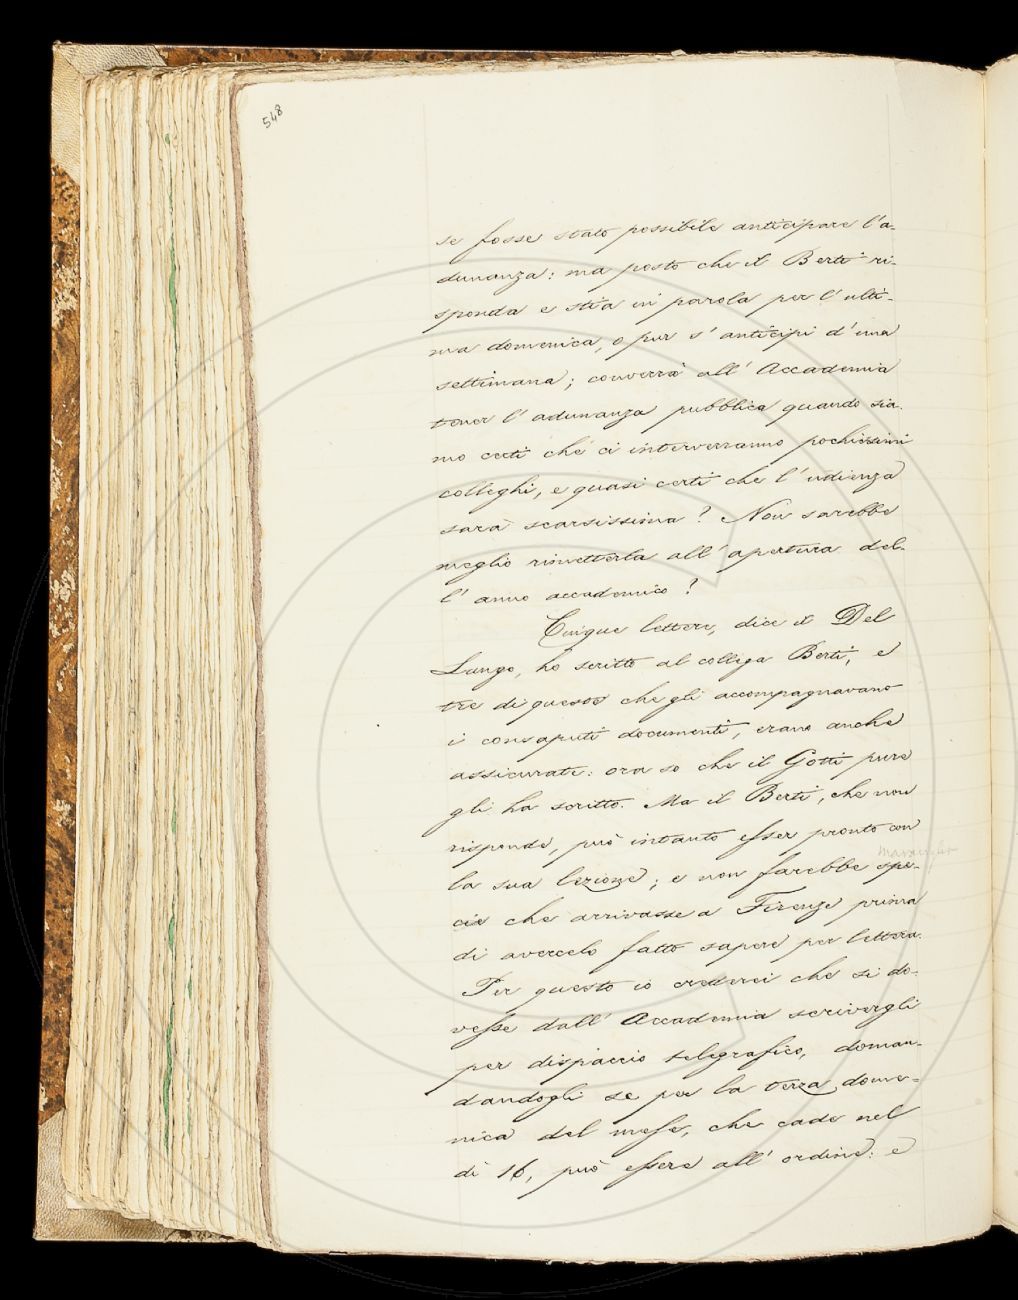 548
se fosse stato possibile anticipare l'a-
dunanza: ma posto che il Berti ri-
sponda e stia in parola per l'ulti-
ma domenica, o pur s'anticipi d'una
settimana; converrà all'Accademia
tener l'adunanza pubblica quando sia-
mo certi che ci interverranno pochissimi
colleghi, e quasi certi che l'udienza
sarà scarsissima? Non sarebbe
meglio rimetterla all'apertura del-
l'anno accademico?
Cinque lettere, dice il Del
Lungo, ho scritto al collega Berti, e
tre di queste che gli accompagnavano
i consaputi documenti, erano anche
assicurate: ora so che il Gotti pure
gli ha scritto. Ma il Berti, che non
risponde, può intanto esser pronto con
la sua lezione; e non farebbe spe-
cie che arrivasse a Firenze prima
di avercelo fatto sapere per lettera.
Per questo io crederei che si do-
vesse dall'Accademia scrivergli
per dispaccio telegrafico, doman-
dandogli se per la terza dome-
nica del mese, che cade nel
dì 16, può essere all'ordine: e